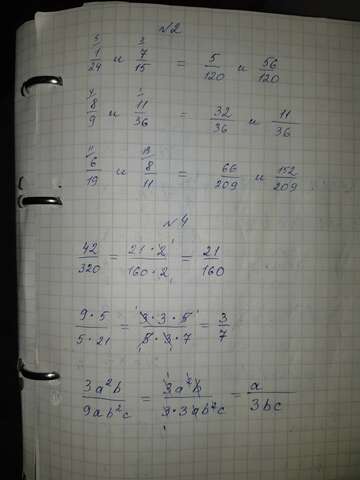 №2
5/1/24 и 8/7/15 = 5/120 и 56/120
4/8/9 и 1/11/36 = 32/36 и 11/36
11/6/19 и 19/8/11 = 66/209 и 152/209
№4
42/320 = 21·2/160·2 = 21/160
9·5/5·21 = 3·3·5/5·3·7 = 3/7
3a²b/9ab²c = 3a²b/3·3ab²c = a/3bc